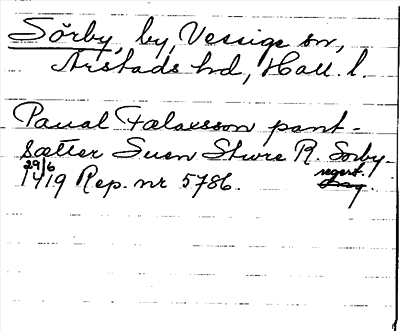 Sörby, by, Vessige sn,
Årstads hd, Hall. l.
Paual Falaxsson pant-
sætter Suen Sture R. Sörby.
29/6 1419 Rep. nr 5786. regest.